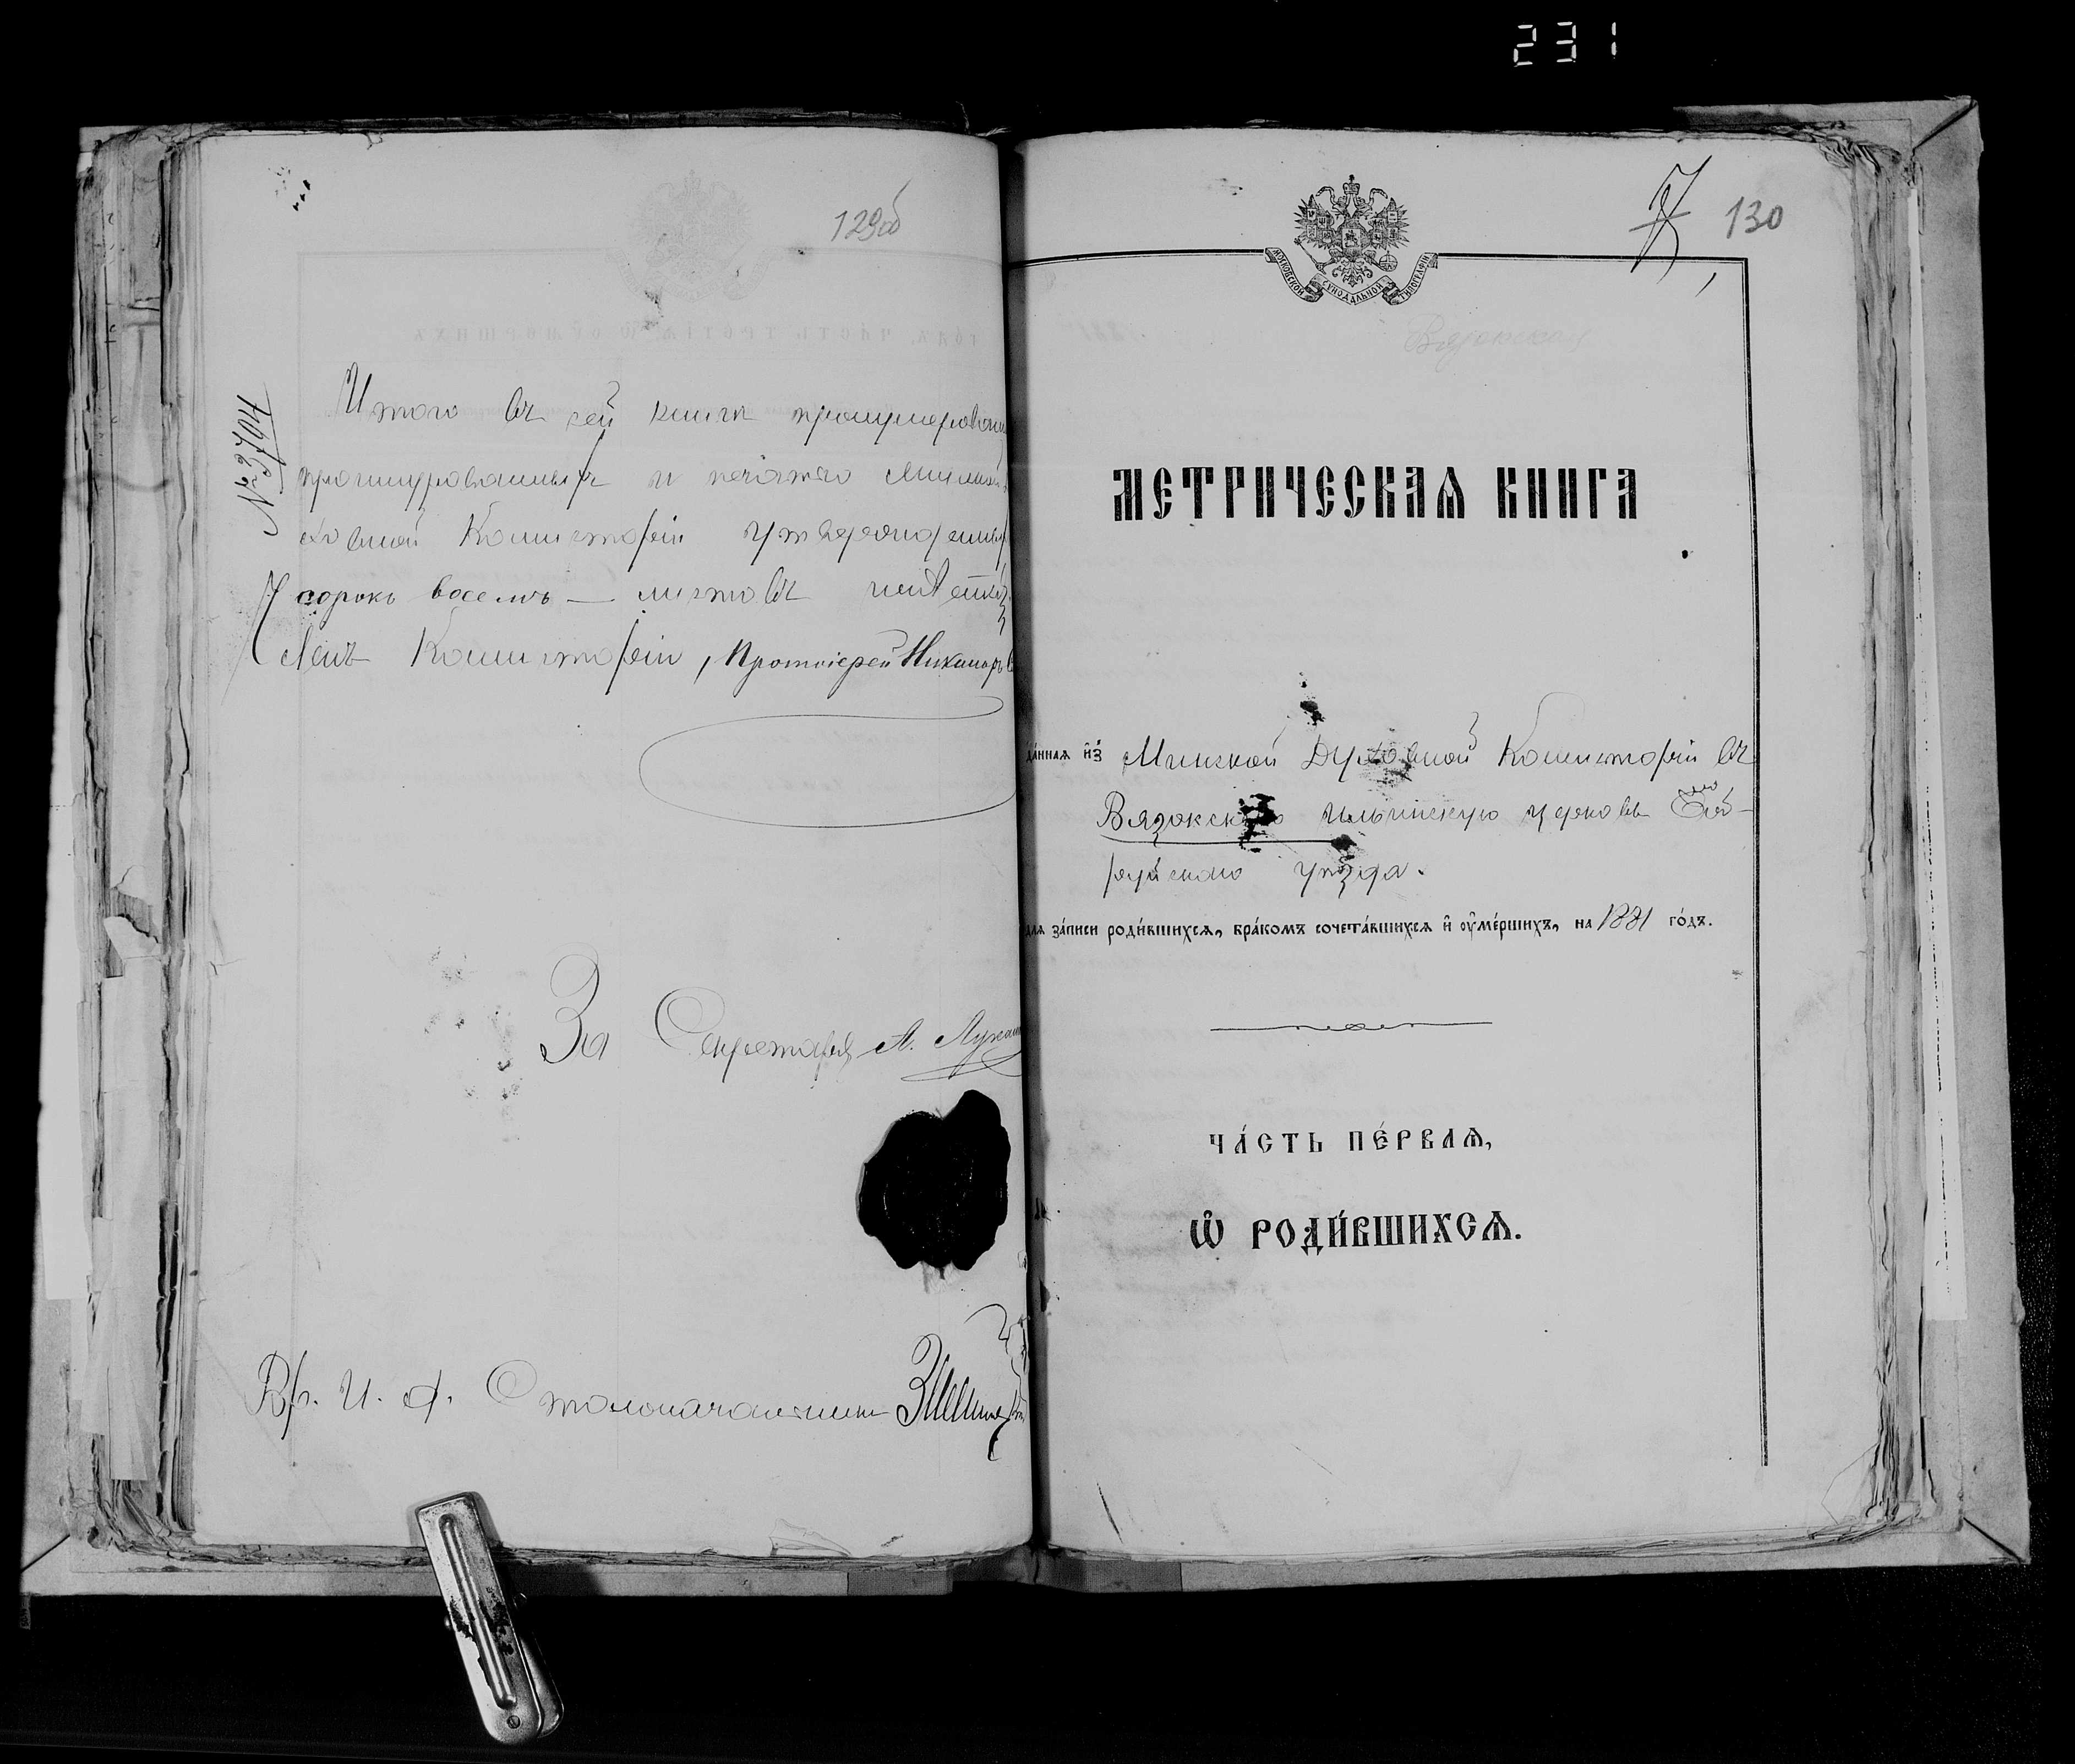 231
129об
№ 3704
Итого въ сей книгѣ пронумерован
прошнурованныхъ и печатью Минской
ховной Консисторіи утвержденных
сорокъ восемь — листовъ
Членъ Консисторіи, Протоіерей Никаноръ
За Секретаря А.
Вр. И. д. Столоначальника
130
МОСКОВСКОЙ СѴНОДАЛЬНОЙ ТИПОГРАФІИ
Вязокская
МЕТРИЧЕСКАѦ КНИГА
да́ннаѧ и҆з̾ Минской Духовной Консисторіи въ
Вязокскую Ильинскую церковь Боб-
руйскаго уѣзда.
длѧ за́писи роди́вшихсѧ, бра́комъ сочета́вшихсѧ и҆ ᲂу҆ме́ршихъ, на 1881 го́дъ.
ЧА́СТЬ ПЕ́РВАѦ,
Ѽ РОДИ́ВШИХСѦ.